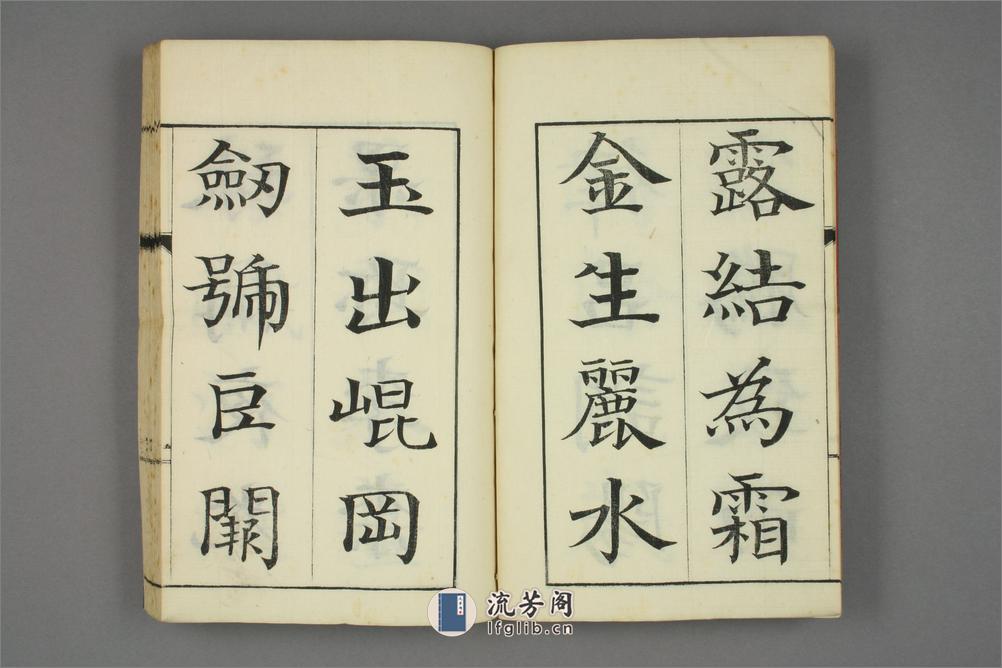 露結為霜
金生麗水
玉出崐岡
劒號巨闕
流芳阁
lfglib.cn